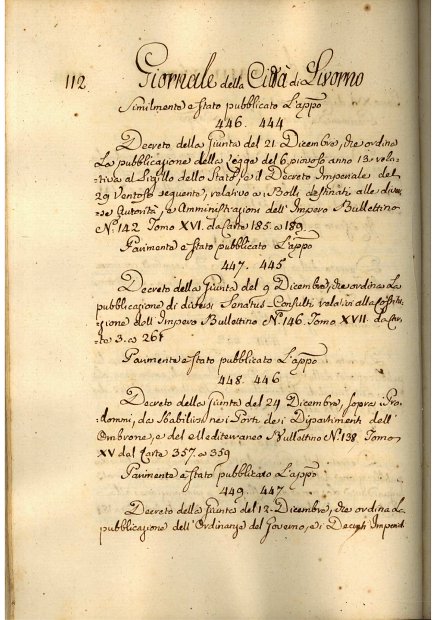 112 Giornale della Città di Livorno
Similmente è stato pubblicato L'app.o
446. 444
Decreto della Giunta del 21. Dicembre, che ordina
La pubblicazione della Legge del 6. piovoso anno 13. rela-
tiva al Sigillo dello Stato, e il Decreto Imperiale del
29 Ventoso seguente, relativo a Bolli destinati alle diver-
se Autorità, e Amministrazioni dell'Impero Bullettino
N.º 142 Tomo XVI. da Carte 185. a 189.
Parimente è stato pubblicato L'app.o
447. 445
Decreto della Giunta del 9 Dicembre, che ordina La
pubblicazione di diversi Senatus-Consulti relativi alla Costitu-
zione dell'Impero Bullettino N.º 146. Tomo XVII. da Car-
te 3. a 261
Parimente è stato pubblicato L'app.o
448. 446
Decreto della Giunta del 24 Dicembre, sopra i Pro-
dommi, da stabilirsi nei Porti dei Dipartimenti dell'
Ombrone, e del Mediterraneo Bullettino N.º 138. Tomo
XV da Carte 357. a 359
Parimente è stato pubblicato L'app.o
449. 447
Decreto della Giunta del 12. Dicembre, che ordina La
pubblicazione dell'Ordinanza del Governo, e i Decreti Imperiali